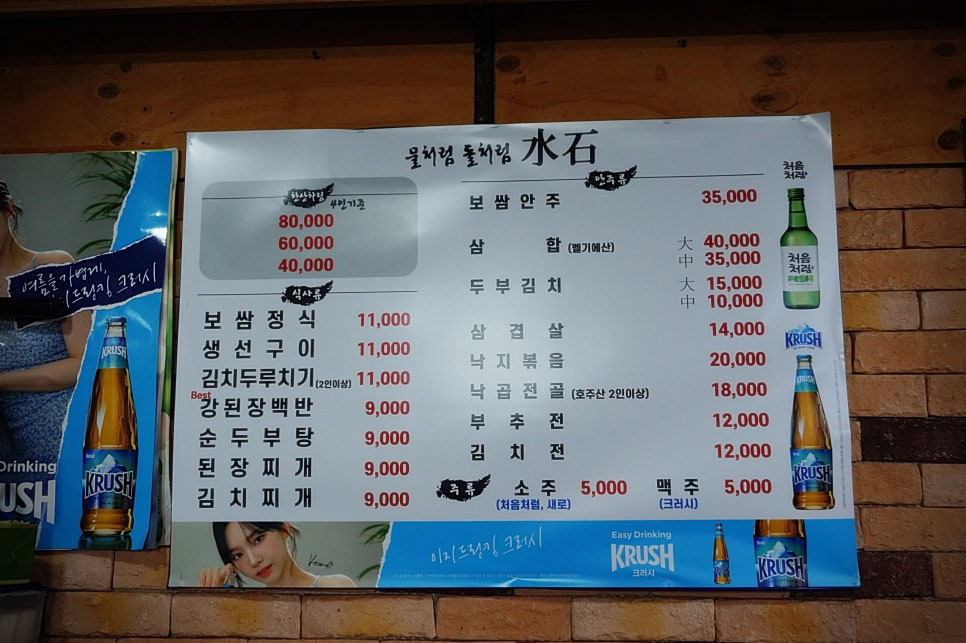 물처럼 돌처럼 水石
한상차림 4인기준
80,000
60,000
40,000
식사류
보쌈정식 11,000
생선구이 11,000
김치두루치기 (2인이상) 11,000
Best
강된장백반 9,000
순두부탕 9,000
된장찌개 9,000
김치찌개 9,000
안주류
보쌈안주 35,000
삼합 (벨기에산) 大 40,000
中 35,000
두부김치 大 15,000
中 10,000
삼겹살 14,000
낙지볶음 20,000
낙곱전골 (호주산 2인이상) 18,000
부추전 12,000
김치전 12,000
주류 소주 5,000 맥주 5,000
(처음처럼, 새로) (크러시)
처음
처럼
처음
처럼
KRUSH
KRUSH
KRUSH
이지 드링킹 크러시
Easy Drinking
KRUSH
크러시
KRUSH
여름을 가볍게,
이지 드링킹 크러시
KRUSH
KRUSH
Drinking
USH